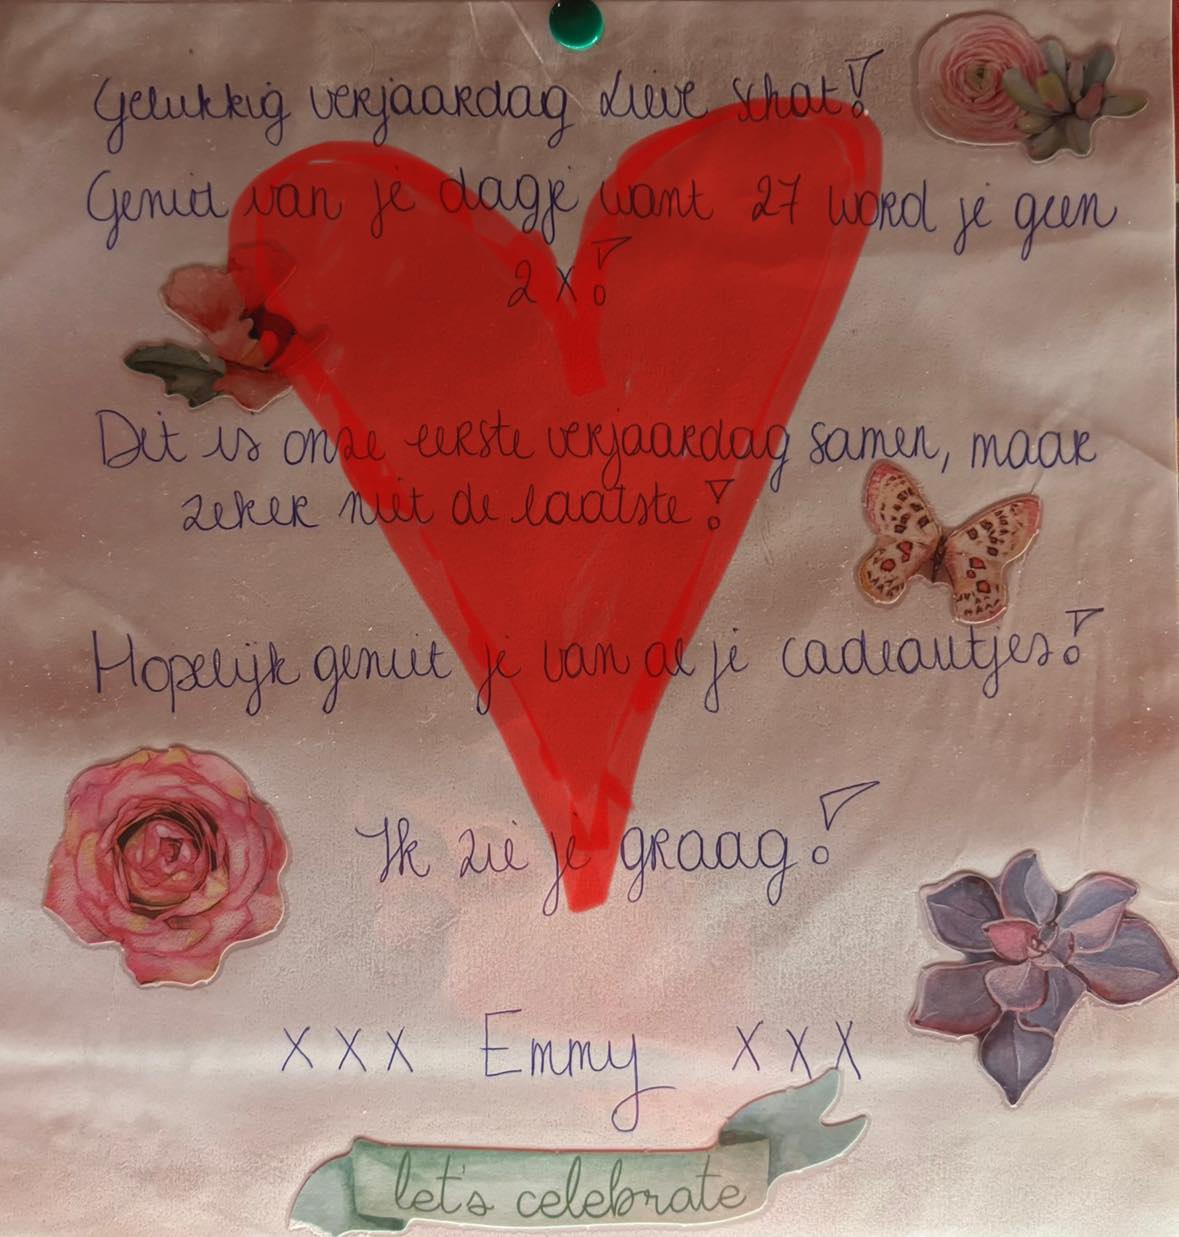 Gelukkig verjaardag lieve schat!
Geniet van je dagje want 27 word je geen
2x!
Dit is onze eerste verjaardag samen, maar
zeker niet de laatste!
Hopelijk geniet je van al je cadeautjes!
Ik zie je graag!
XXX Emmy XXX
let's celebrate